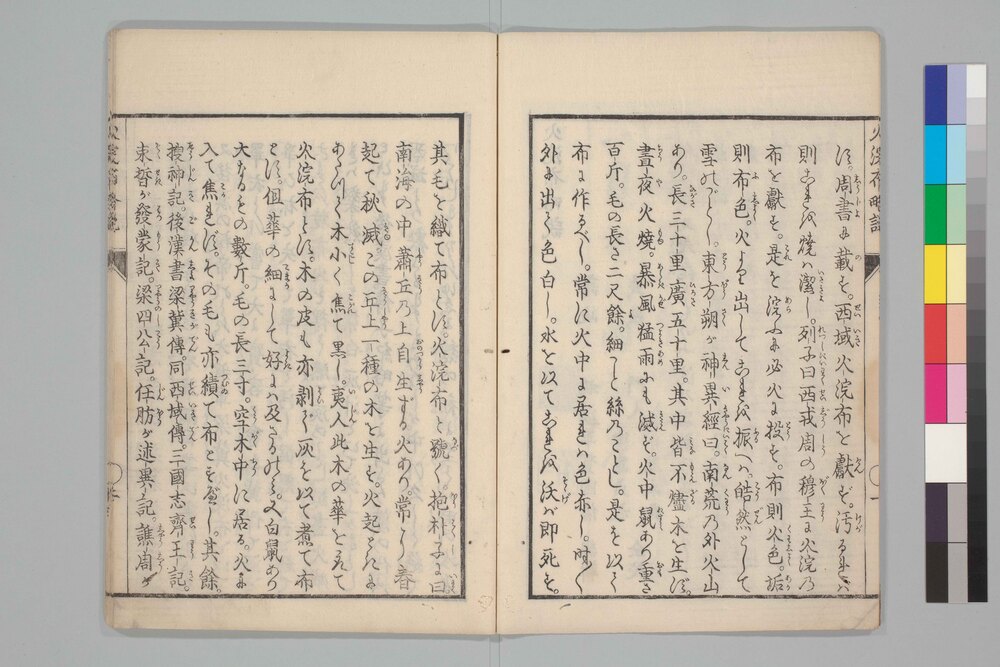 火浣布略説
ず。周書に載を。西域火浣布を獻ず。汚るれば
則これを燒ば潔し。列子曰西戎周の穆王に火浣の
布を獻ず。是を浣ふに必火に投ず。布則火色。垢
則布色。火より出してこれを振へば皓然として
雪のごとし。東方朔が神異經曰。南荒乃外火山
あり。長三十里廣五十里。其中皆不燼木を生ず。
晝夜火燒。暴風猛雨にも滅ず。火中鼠あり重さ
百斤。毛の長さ二尺餘。細こと絲のごとし。是を以て
布に作るべし。常に火中に居れば色赤し。時々
外に出て色白し。水を以てこれに沃げば即死す。
其毛を織て布とす。火浣布と號く。抱朴子に曰
南海の中蕭丘乃上自生ずる火あり。常に春
起て秋滅この丘上一種の木を生ず。火起るに
あたつて木小く焦て黒し。夷人此木の華をとりて
火浣布とす。木の皮も亦剥て灰を以て煮て布
とす。但華の細にして好には及ざるのみ。又白鼠あり
大なるもの數斤。毛の長三寸。空木中に居る。火に
入て焦れず。その毛も亦績て布とすべし。其餘。
搜神記。後漢書梁冀傳。同西域傳。三國志齊王記。
束晳が發蒙記。梁四公記。任昉が述異記。譙周が